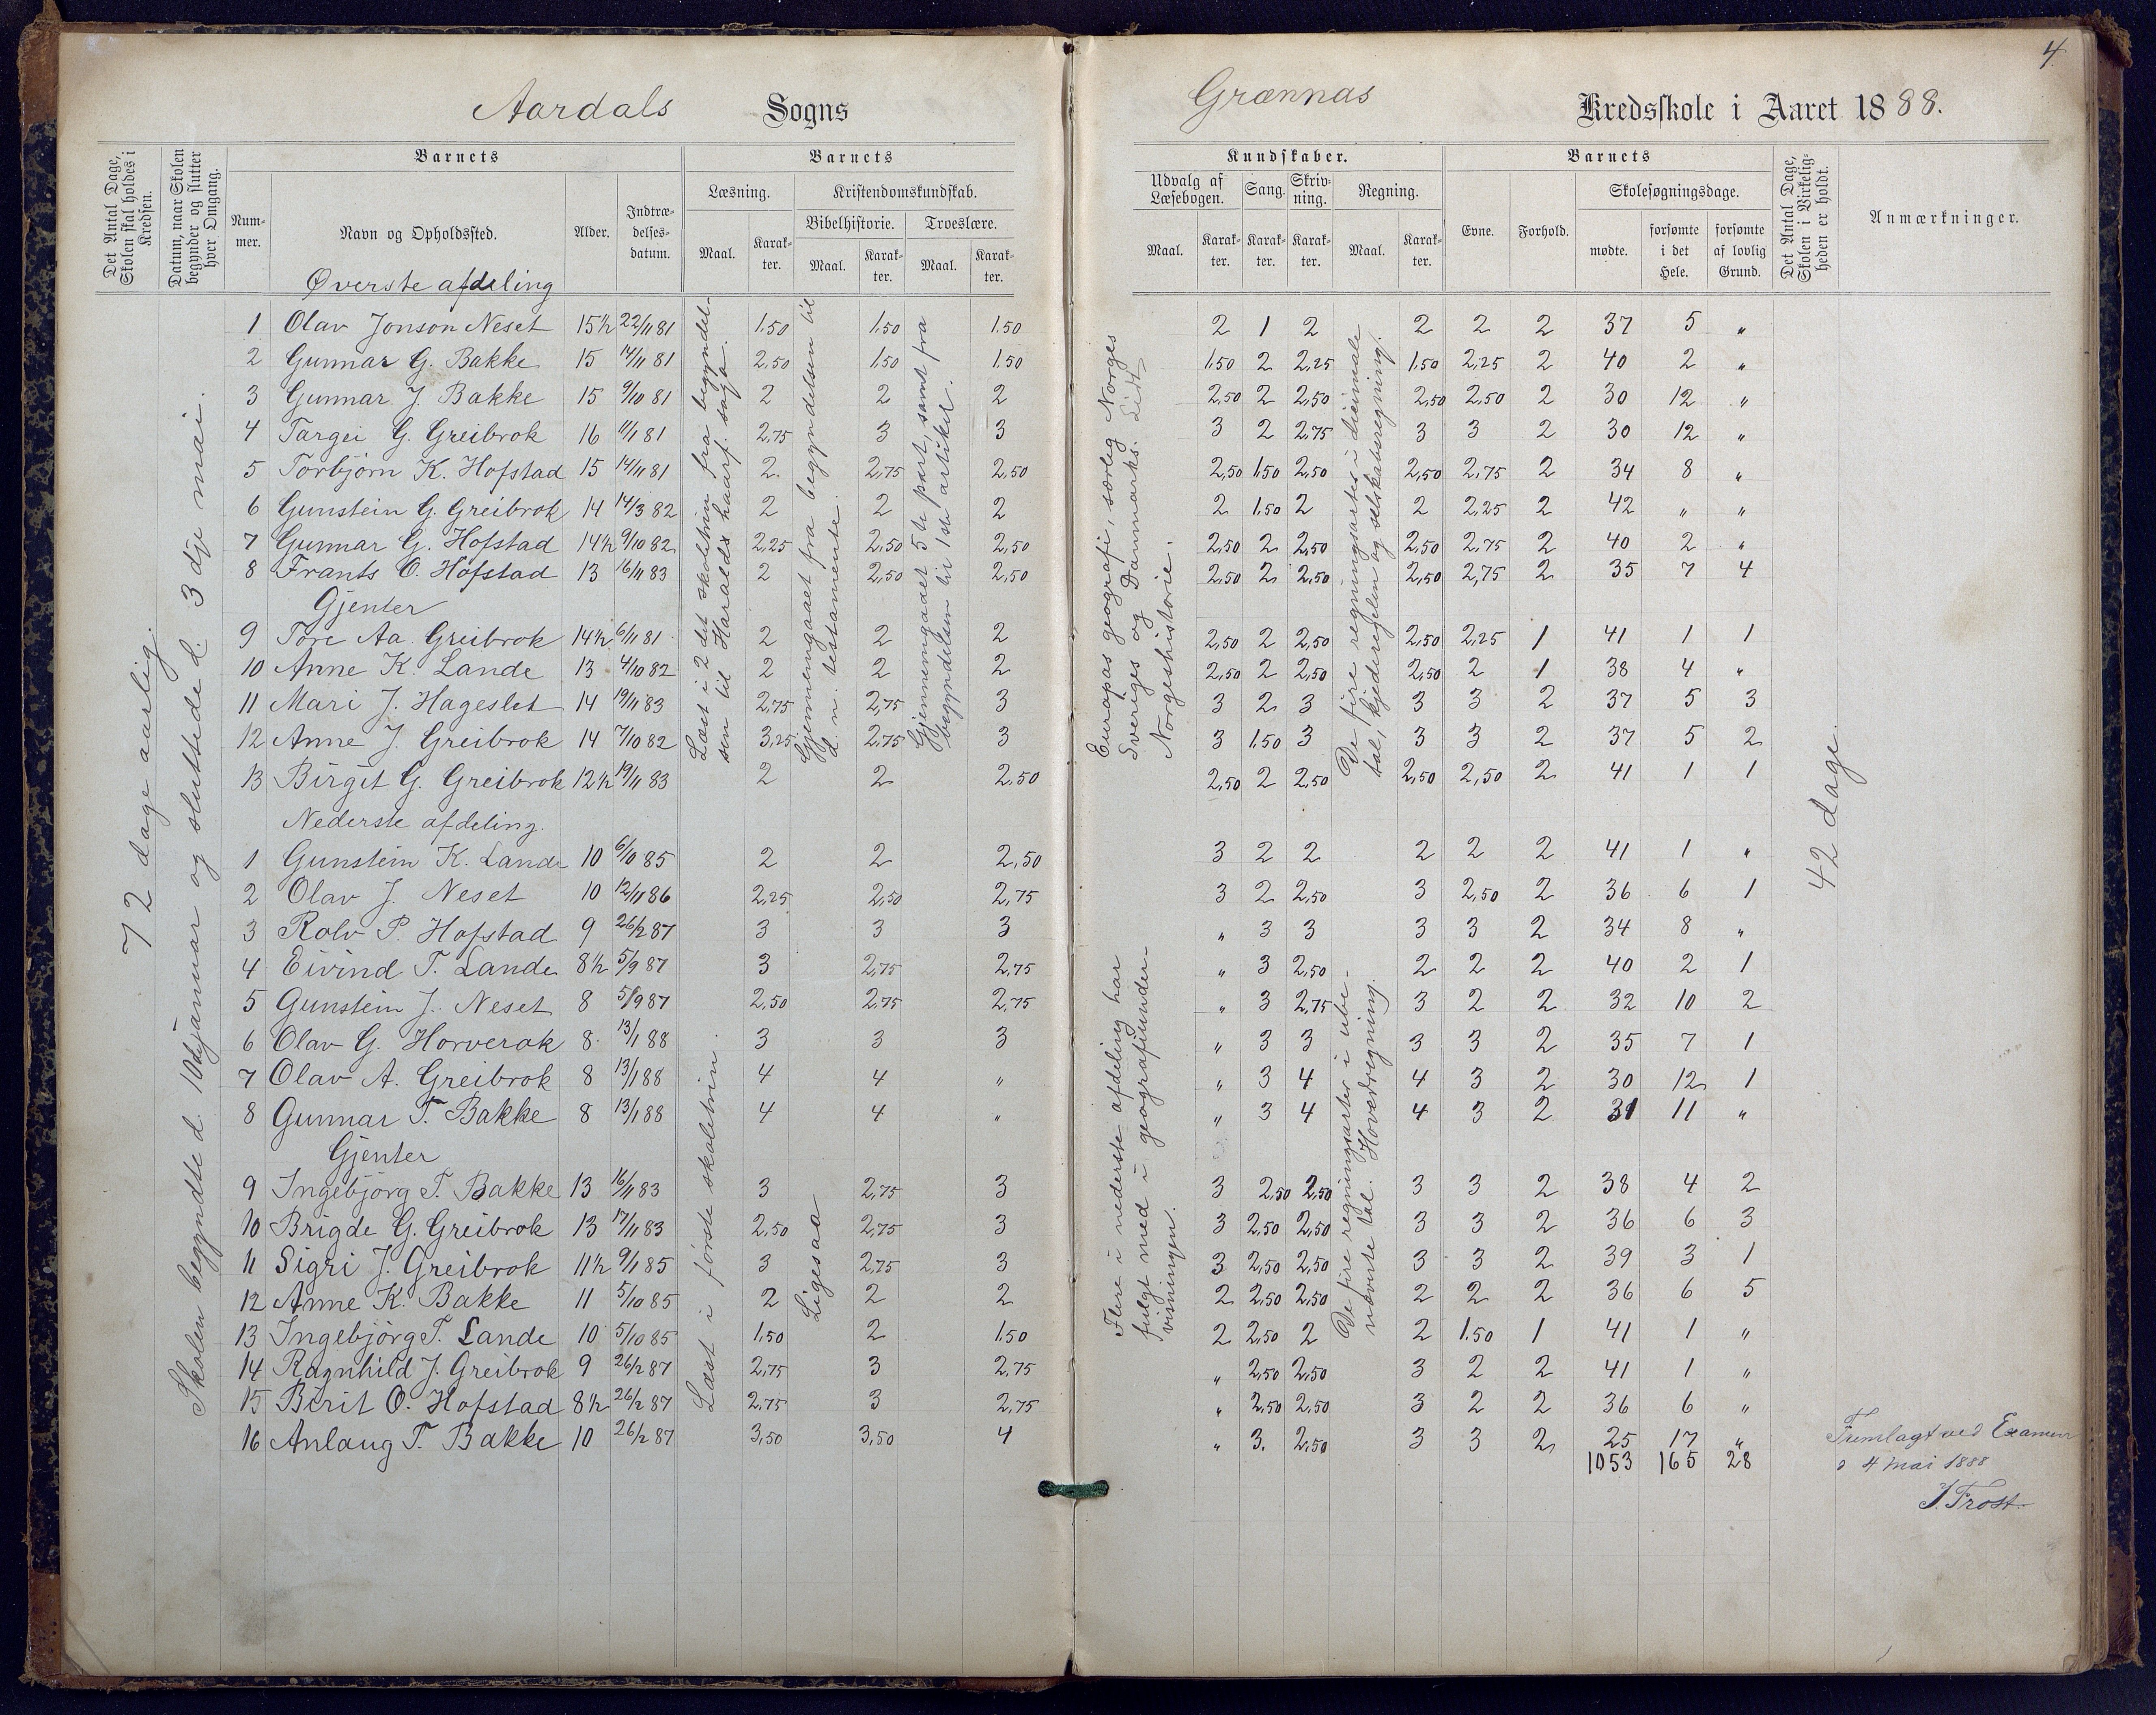 4
Aardals Sogns Grænnas Kredsskole i Aaret 1888.
Det Antal Dage, Skolen skal holdes i Kredsen.
Datum, naar Skolen begynder og slutter hver Omgang.
Barnets
Num-mer.
Navn og Opholdssted.
Alder.
Indtræ-delses-datum.
Barnets
Læsning.
Maal. Karak-ter.
Kristendomskundskab.
Bibelhistorie. Troeslære.
Maal. Karak-ter. Maal. Karak-ter.
Kundskaber.
Udvalg af Læsebogen. Sang. Skriv-ning. Regning.
Maal. Karak-ter. Karak-ter. Karak-ter. Maal. Karak-ter.
Barnets
Evne. Forhold.
Skolesøgningsdage.
mødte. forsømte i det Hele. forsømte af lovlig Grund.
Det Antal Dage, Skolen i Virkelig-heden er holdt.
Anmærkninger.
72 dage aarlig.
Skolen begyndte d. 10de januar og sluttede d. 3 dje mai.
Øverste afdeling
1 Olav Jonson Neset 15½ 22/11 81 1.50 1.50 1.50 2 1 2 2 2 2 37 5 "
2 Gunnar G. Bakke 15 14/11 81 2.50 1.50 1.50 1.50 2 2,25 1.50 2,25 2 40 2 "
3 Gunnar J. Bakke 15 9/10 81 2 2 2 2,50 2 2,50 2,50 2,50 2 30 12 "
4 Targei G. Greibrok 16 11/1 81 2,75 3 3 3 2 2,75 3 3 2 30 12 "
5 Torbjørn K. Hofstad 15 14/11 81 2. 2,75 2,50 2,50 1.50 2,50 2,50 2,75 2 34 8 "
6 Gunstein G. Greibrok 14 14/3 82 2 2 2 2 1.50 2 2 2,25 2 42 " "
7 Gunnar G. Hofstad 14½ 9/10 82 2,25 2,50 2,50 2,50 2 2,50 2,50 2,75 2 40 2 "
8 Frants O. Hofstad 13 16/11 83 2 2,50 2,50 2,50 2 2,50 2,50 2,75 2 35 7 4
Gjenter
9 Tore Aa. Greibrok 14½ 6/11 81 2 2 2 2,50 2 2,50 2,50 2,25 1 41 1 1
10 Anne K. Lande 13 4/10 82 2 2 2 2,50 2 2,50 2,50 2 1 38 4 "
11 Mari J. Hageslet 14 19/11 83 2,75 2,75 3 3 2 3 3 3 2 37 5 3
12 Anne J. Greibrok 14 7/10 82 3,25 2,75 3 3 1.50 3 3 3 2 37 5 2
13 Birgit G. Greibrok 12½ 19/11 83 2 2 2,50 2,50 2 2,50 2,50 2,50 2 41 1 1
Læst i 2 det skoletrin fra begyndel-
sen til Haralds haarf. saga.
Gjennemgaaet fra begyndelsen til
d. n. testamente.
Gjennemgaaet 5 te part, samt fra
begyndelsen til 1 ste artikel.
Europas geografi, særlig Norges
Sveriges og Danmarks. Lidt
Norgeshistorie.
De fire regningsarter i decimale
tal, kjederegelen og selskabsregning.
42 dage.
Nederste afdeling.
1 Gunstein K. Lande 10 6/10 85 2 2 2,50 3 2 2 2 2 2 41 1 "
2 Olav J. Neset 10 12/11 86 2,25 2,50 2,75 3 2 2,50 3 2,50 2 36 6 1
3 Rolv P. Hofstad 9 26/2 87 3 3 3 " 3 3 3 3 2 34 8 "
4 Eivind T. Lande 8½ 5/9 87 3 2,75 2,75 " 3 2,50 2 2 2 40 2 1
5 Gunstein J. Neset 8 5/9 87 2,50 2,75 2,75 " 3 2,75 3 2 2 32 10 2
6 Olav G. Horverak 8 13/1 88 3 3 3 " 3 3 3 3 2 35 7 1
7 Olav A. Greibrok 8 13/1 88 4 4 " " 3 4 4 3 2 30 12 1
8 Gunnar T. Bakke 8 13/1 88 4 4 " " 3 4 4 3 2 31 11 "
Gjenter
9 Ingebjørg T. Bakke 13 16/11 83 3 2,75 3 3 2,50 2,50 3 3 2 38 4 2
10 Brigde G. Greibrok 13 17/11 83 2,50 2,75 3 3 2,50 2,50 3 3 2 36 6 3
11 Sigri J. Greibrok 11½ 9/1 85 3 2,75 3 3 2,50 2,50 3 3 2 39 3 1
12 Anne K. Bakke 11 5/10 85 2 2 2 2 2,50 2,50 2 2 2 36 6 5
13 Ingebjörg T. Lande 10 5/10 85 1.50 2 1.50 2 2,50 2 2 1.50 1 41 1 "
14 Ragnhild J. Greibrok 9 26/2 87 2,75 3 2,75 " 2,50 2,50 3 2 2 41 1 "
15 Berit O. Hofstad 8½ 26/2 87 2,75 3 2,75 " 2,50 2,50 3 2 2 36 6 "
16 Anlaug T. Bakke 10 26/2 87 3,50 3,50 4 " 3. 2,50 3 3 2 25 17 "
1053 165 28
Læst i første skoletrin.
Ligesaa
Flere i nederste afdeling har
fulgt med i geografiunder-
visningen.
De fire regningsarter i ube-
nævnte tal. Hovedregning.
Fremlagt ved Examen
d 4 mai 1888
J. Frost.